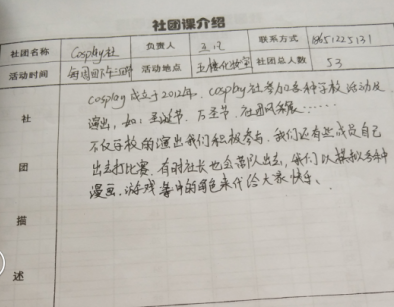 社团课介绍
社团名称 Cosplay社 负责人 联系方式 18651225131
活动时间 每周四下午 活动地点 五楼化妆室 社团总人数 53
cosplay 成立于2012年. cosplay社参加各种学校活动及
演出，如：圣诞节、万圣节、社团风采展……
不仅学校的演出我们积极参与，我们还有些成员自己
出去打比赛，有时社长也会带队出去，我们以模拟各种
漫画、游戏 中的角色来代给大家快乐、
社
团
描
述